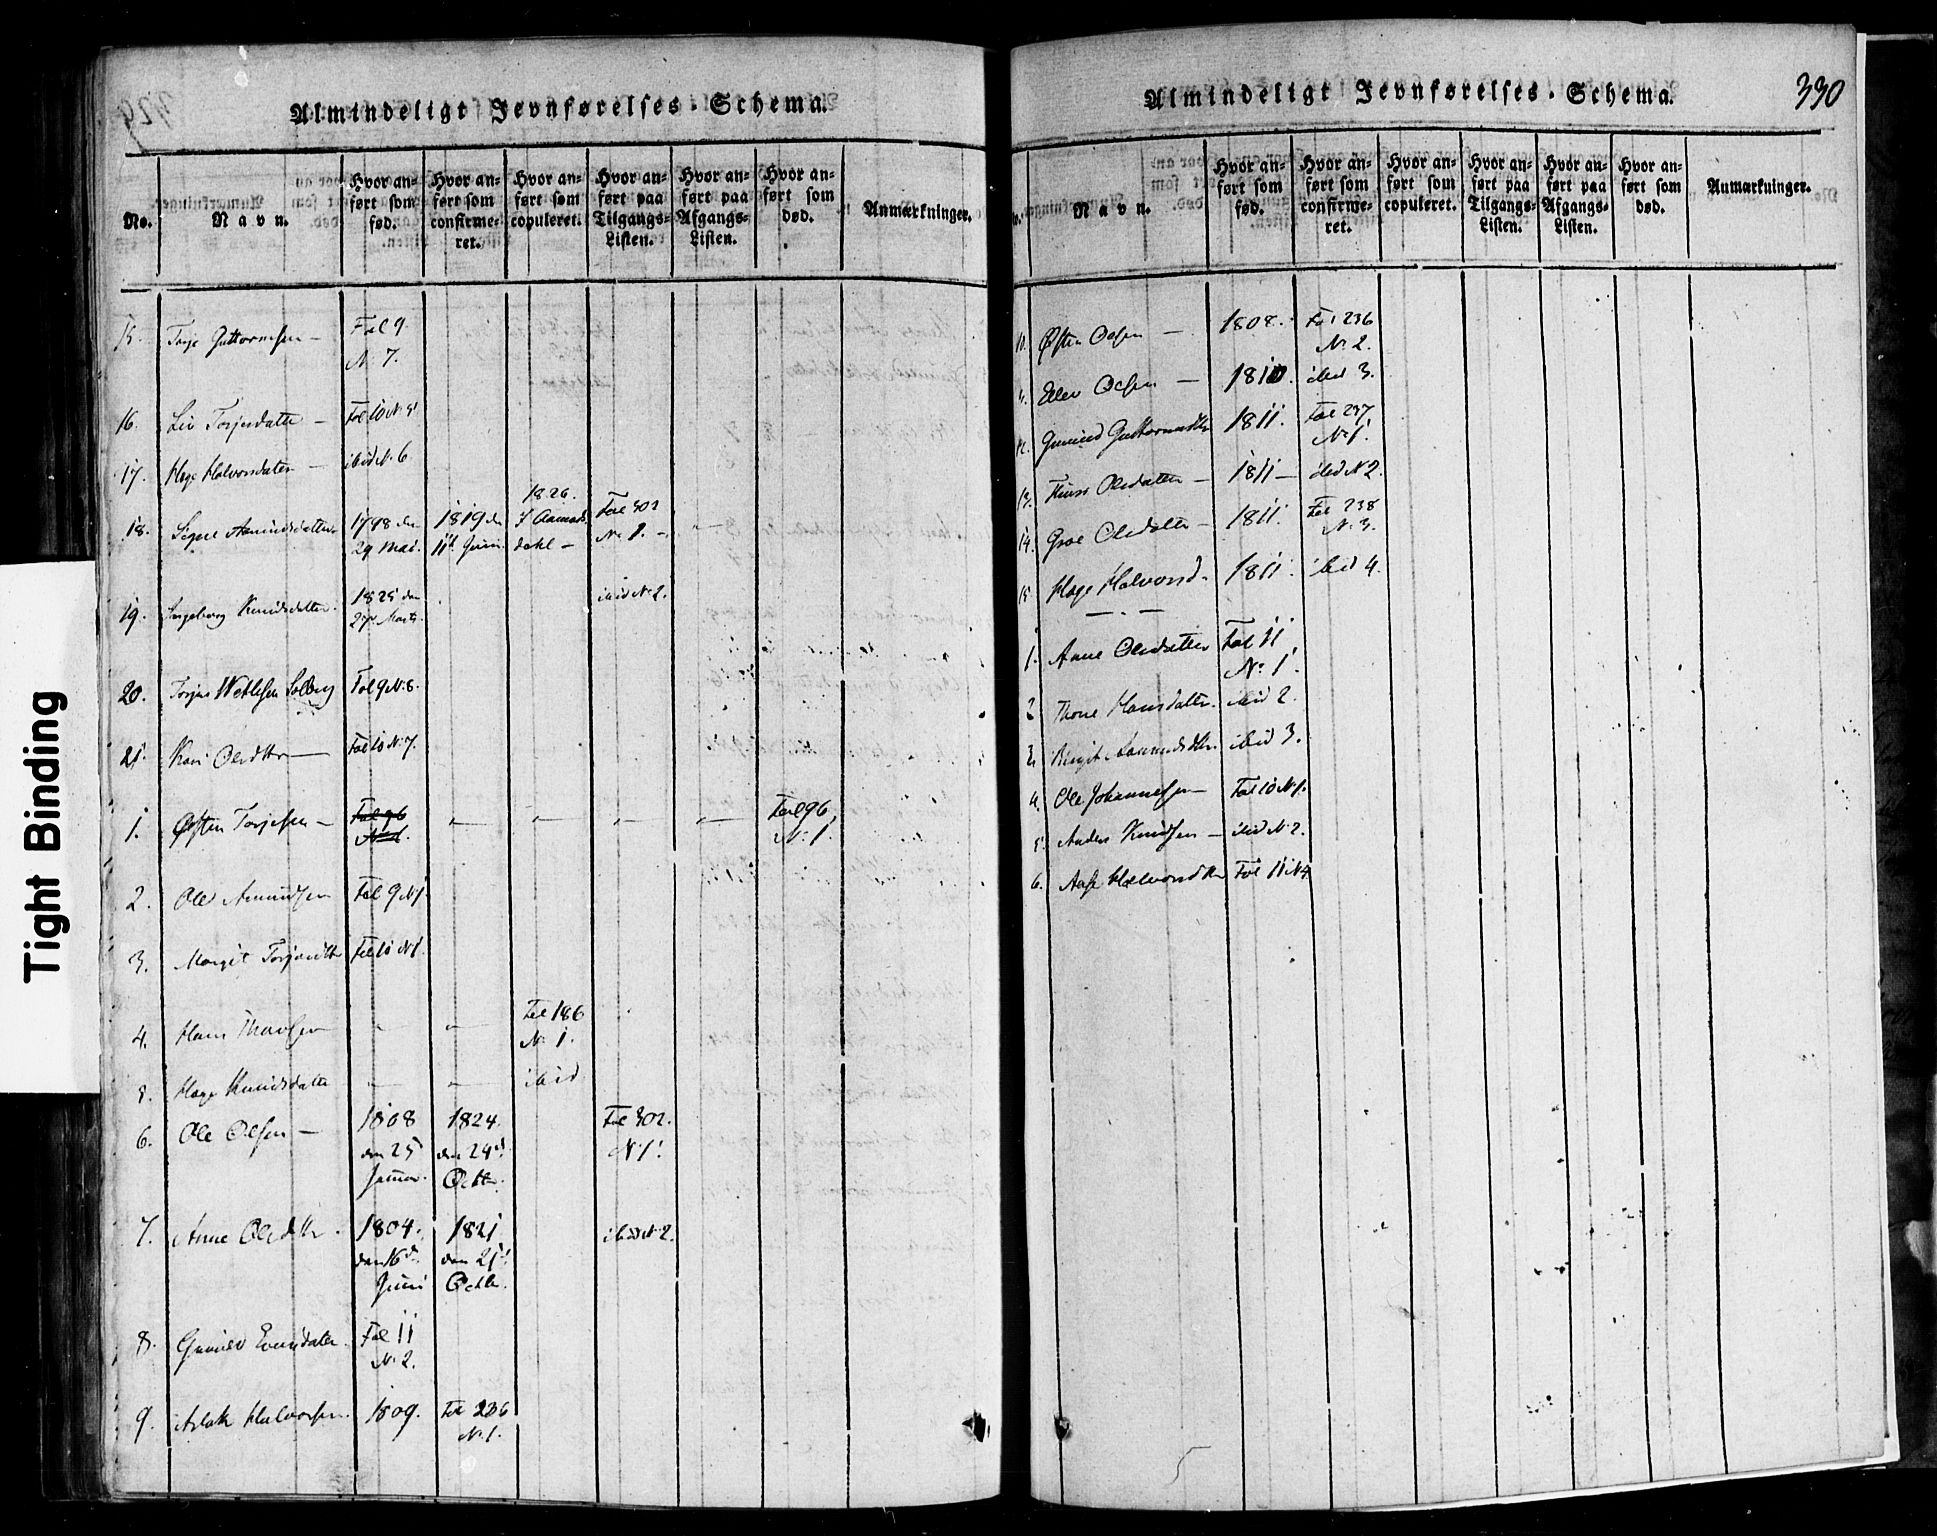 Almindeligt Jevnførelses-Schema.
No. | Navn. | Hvor anført som fød. | Hvor anført som confirmeret. | Hvor anført som copuleret. | Hvor anført paa Tilgangs-Listen. | Hvor anført paa Afgangs-Listen. | Hvor anført som død. | Anmærkninger.
15. Torje Guttormsen — Fol 9.
N. 7.
16. Liv Torjusdatter — Fol 10 N. 5
17. Hege Halvorsdatter — ibid N. 6
1826.
18. Aamundsdatter 1798 den 1819 den 7 Aamods Fol 302
29 Mai. 11te Juni. dahl — N. 1. —
19. Ingeborg Knudsdatter. 1825 den ibid N. 2.
27 Marts.
20. Torjus Wetlesen Solberg Fol 9 N. 8.
21. Kari Olesdttr — Fol 10 N. 7.
1. Østen Torjesen — Fol 96 Fol 96,
N. 1. N. 1.
2. Ole Amundsen Fol 9 N 1.
3. Margit Torjusdttr Fol 10 N 1.
4. Hans Fol 186
N. 1.
5. Hege Knudsdatter ibid
6. Ole Olsen — 1808 1824. Fol 302.
den 25 den 24d N. 1.
Januar. Octbr.
7. Anne Olesdttr. 1804. 1821 ibid N. 2.
den 16d den 21d
Juni Octbr.
8. Gunild Evensdatter. Fol 11
N. 2.
9. Aslak Halvorsen. 1809. Fol 236
N. 1.
Tight Binding
Almindeligt Jevnførelses-Schema.
330
Navn. | Hvor anført som fød. | Hvor anført som confirmeret. | Hvor anført som copuleret. | Hvor anført paa Tilgangs-Listen. | Hvor anført paa Afgangs-Listen. | Hvor anført som død. | Anmærkninger.
10. Østen Olsen — 1808. Fol 236
N. 2.
Ellev Olsen — 1810. ibid 3.
12. Gunild Guttormsdtr 1811. Fol 237
N. 1.
13. Olesdatter — 1811 — ibid N 2.
14. Groe Olesdatter — 1811. Fol 238
N. 3.
15 Hege Halvorsd. 1811. ibid 4.
1. Anne Olesdatter Fol 11
N. 1.
2 Thone Hansdatter. ibid 2.
3 Birgit Aamundsdttr. ibid 3.
4. Ole Johannesen — Fol 10 N 1.
5. Anders Knudsen — ibid N. 2.
6. Aase Halvorsdttr Fol 11 N 4.